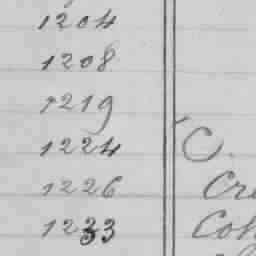 1204
1208
1219
1224 C.
1226 Cre
1233 Coh